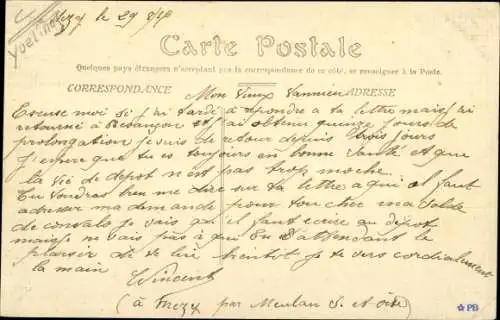 Yvelines
Mezy le 29
Carte Postale
Quelques pays étrangers n'acceptant pas la correspondance de ce côté, se renseigner à la Poste.
CORRESPONDANCE ADRESSE
Mon Vieux Vannier
Excuse moi si j'ai tardé a repondre a ta lettre mais j'ai
retourné à Besançon et j'ai obtenu quinze jours de
prolongation je suis de retour depuis trois jours
J'espere que tu es toujours en bonne santé et que
la vie de depot n'est pas trop moche.
Tu voudras bien me dire sur ta lettre a qui il faut
adresser ma demande pour toucher ma solde
de convalo je vais qu'il faut ecrire au dépot
mais je ne vais pas à qui En attendant le
plaisir de te lire bientot je te vers cordialement
la main
Vincent
(à Mezy par Meulan S. et Oise)
PB